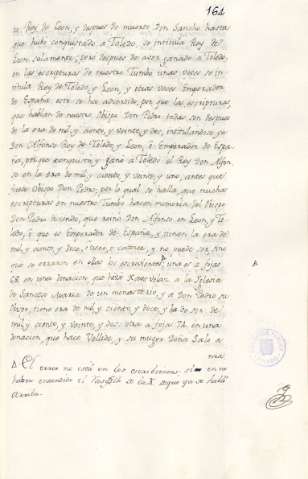 161
Rey de Leon, y despues de muerto Don Sancho hasta
que hubo conquistado a Toledo, se intitula Rey de
Leon solamente, pero despues de aver ganado a Toledo,
en las escrituras de nuestro Tumbo unas veces se in-
titula Rey de Toledo, y Leon, y otras veces Emperador
de España: esto se hace advertido, por que las escripturas,
que hablan de nuestro Obispo Don Pedro todas son despues
de la era de mil, y ciento, y veinte, y dos, intitulandose ya
Don Alfonso Rey de Toledo, y Leon, è Emperador de Espa-
ña, pues que conquistó, y ganó a Toledo el Rey Don Alfon-
so en la era de mil, y ciento, y veinte, y uno, antes que
fuese Obispo Don Pedro, por lo qual se halla, que muchas
escrituras en nuestro Tumbo hacen memoria del Obispo
Don Pedro diciendo, que reinó Don Alfonso en Leon, y To-
ledo, è que es Emperador de España, y tienen la era de
mil, y ciento, y doce, trece, y catorce, y no puede ser, sino
que se erraron en ellas los escribientes, una es a fojas
en una donacion, que hace a la Iglesia
de Sancta Maria de un monasterio, y a Don Pedro su
Obispo, tiene era de mil, y ciento, y doce, y ha de ser de
mil, y ciento, y veinte, y dos: otra a fojas en una
donacion, que hace Vellido, y su muger Doña Sala
A El error no está en los escribientes, sino en no
haber el de la X aqui ya se halla